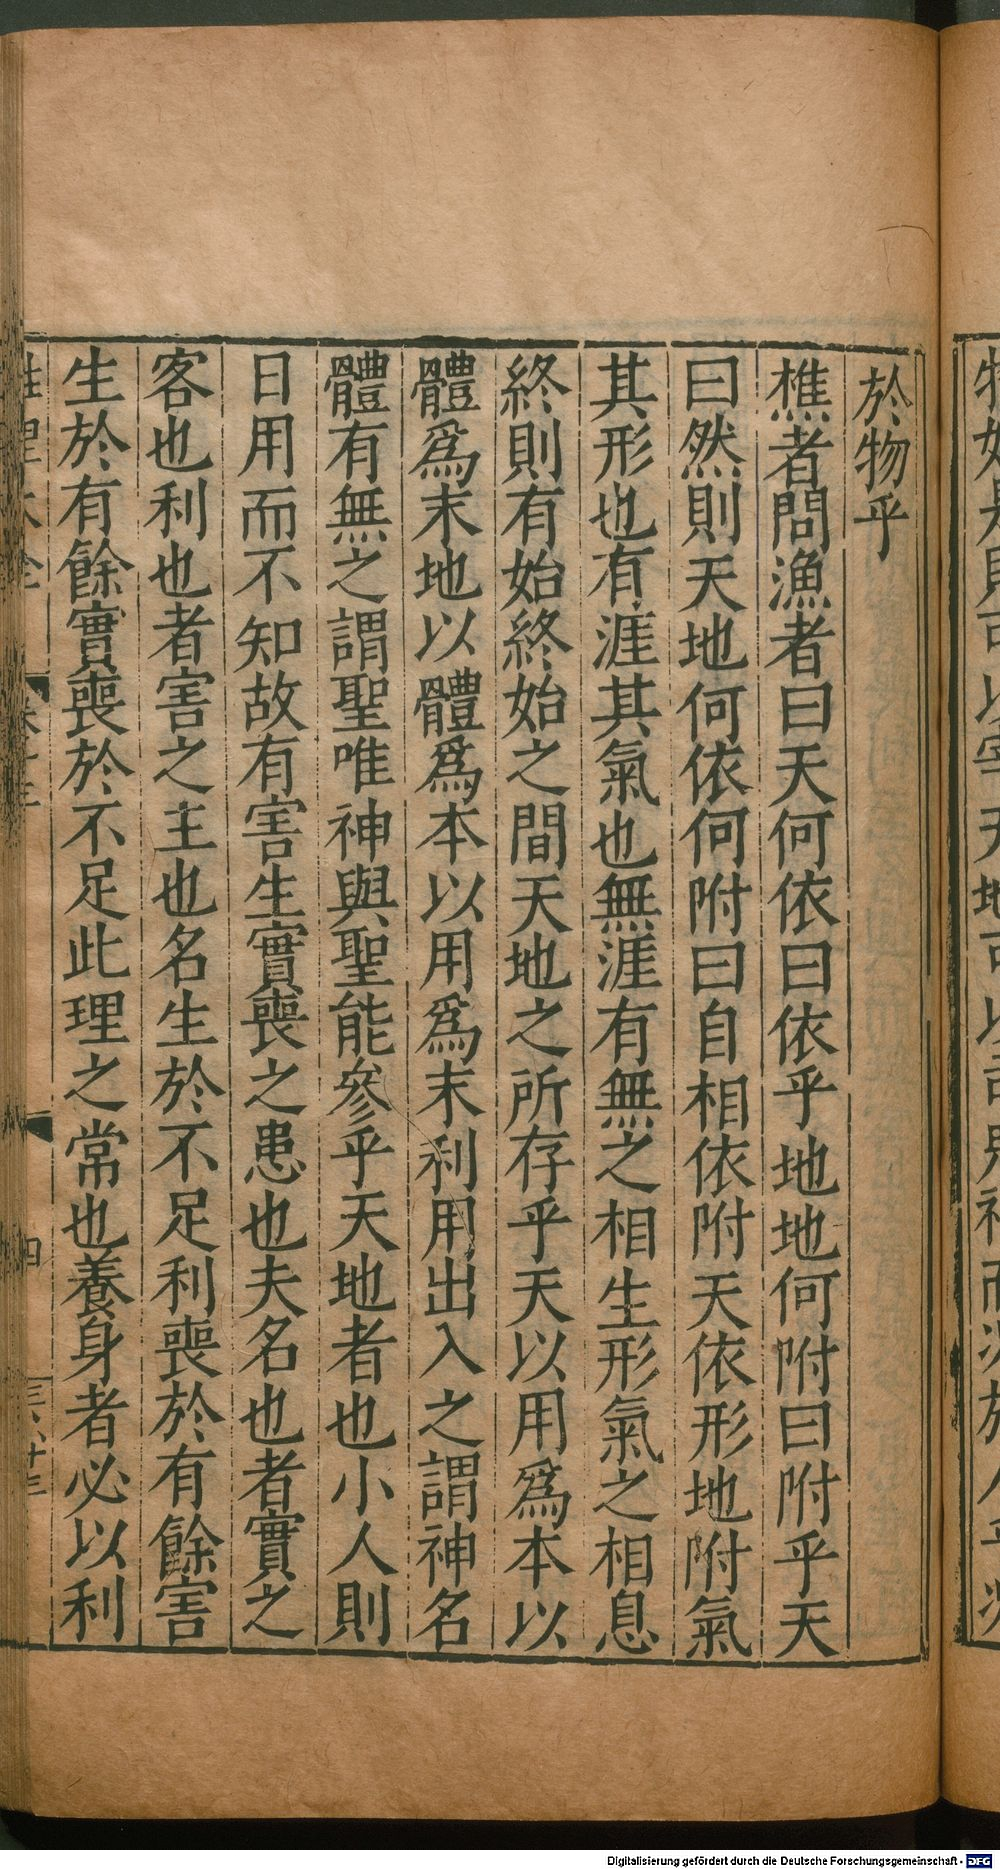 於物乎
樵者問漁者曰天何依曰依乎地地何附曰附乎天
曰然則天地何依何附曰自相依附天依形地附氣
其形也有涯其氣也無涯有無之相生形氣之相息
終則有始終始之間天地之所存乎天以用爲本以
體爲末地以體爲本以用爲末利用出入之謂神名
體有無之謂聖唯神與聖能參乎天地者也小人則
日用而不知故有害生實喪之患也夫名也者實之
客也利也者害之主也名生於不足利喪於有餘害
生於有餘實喪於不足此理之常也養身者必以利
四
Digitalisierung gefördert durch die Deutsche Forschungsgemeinschaft - DFG